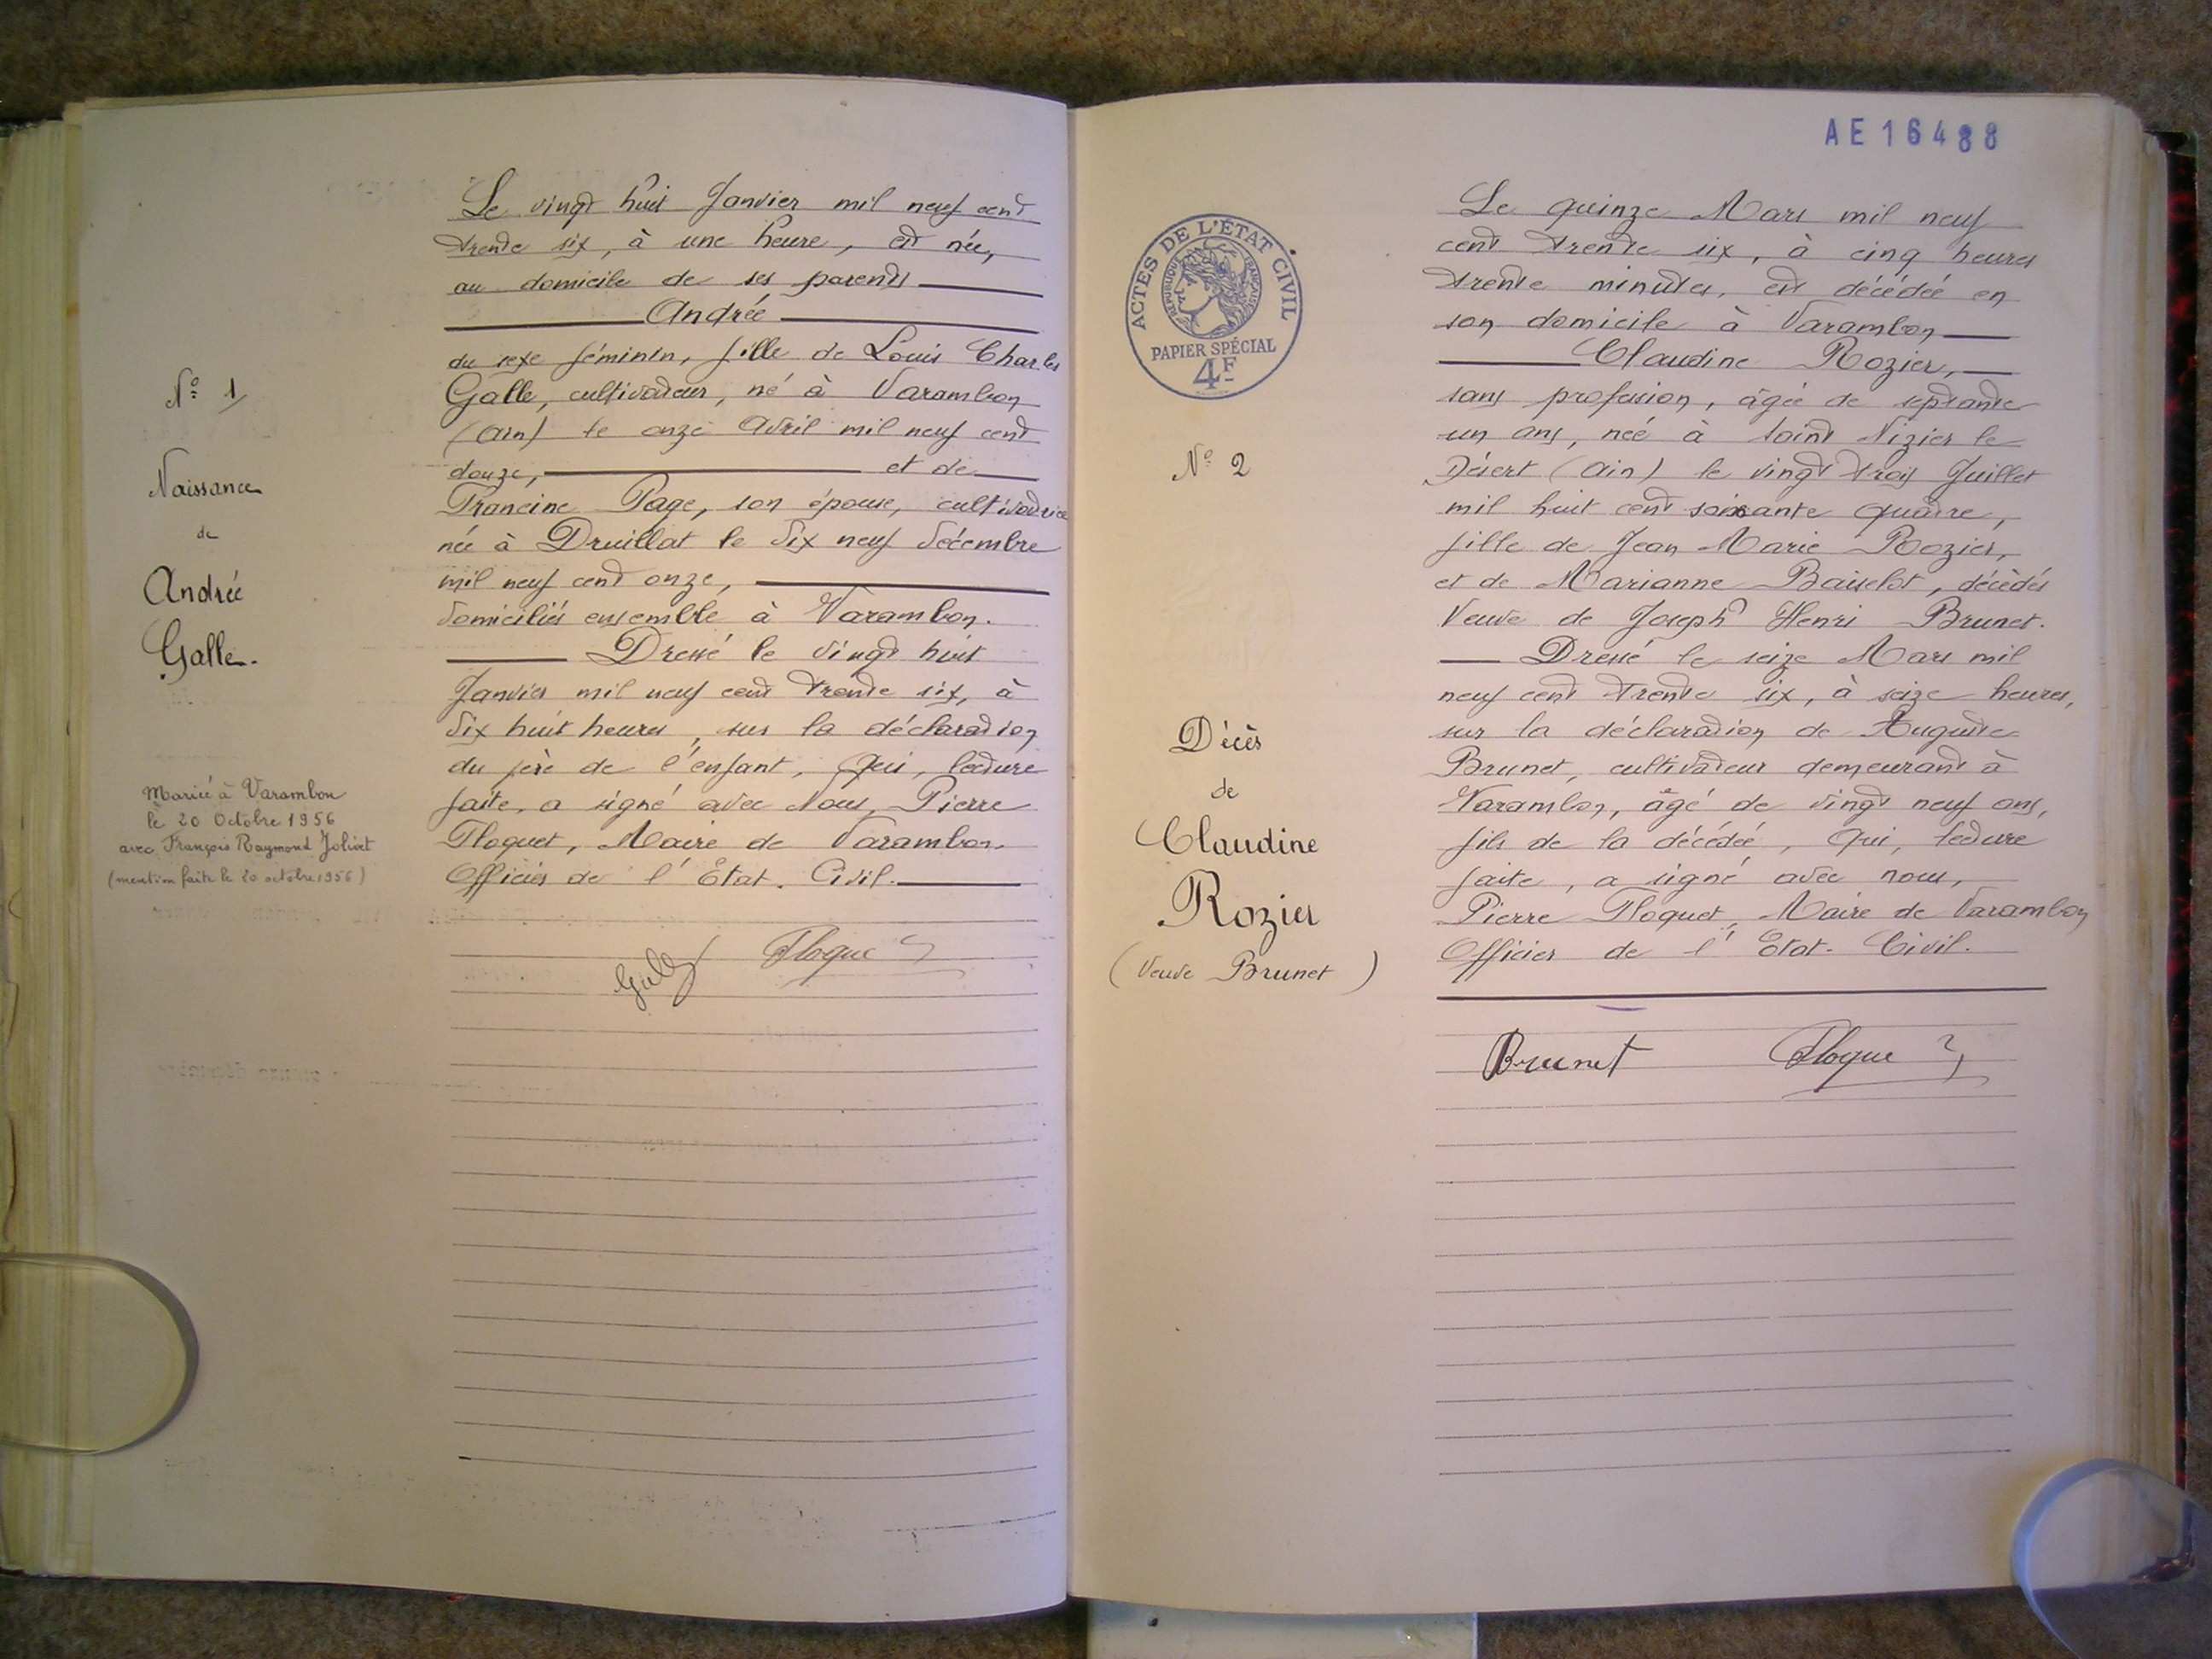 N° 1
Naissance
de
Andrée
Galle.
Mariée à Varambon
le 20 Octobre 1956
avec François Raymond Jolivet
(mention faite le 20 octobre 1956)
Le vingt huit Janvier mil neuf cent
trente six, à une heure, est née,
au domicile de ses parents
Andrée
du sexe féminin, fille de Louis Charles
Galle, cultivateur, né à Varambon
(Ain) le onze Avril mil neuf cent
douze, et de
Francine Page, son épouse, cultivatrice
née à Druillat le dix neuf décembre
mil neuf cent onze,
domiciliés ensemble à Varambon.
Dressé le vingt huit
Janvier mil neuf cent trente six, à
dix huit heures, sur la déclaration
du père de l'enfant, qui, lecture
faite, a signé avec Nous, Pierre
Floquet, Maire de Varambon,
Officier de l'Etat. Civil.
Galle Floquet
AE16488
ACTES DE L'ÉTAT CIVIL
RÉPUBLIQUE FRANÇAISE
PAPIER SPÉCIAL
4F
N° 2
Décès
de
Claudine
Rozier
(Veuve Brunet)
Le quinze Mars mil neuf
cent trente six, à cinq heures
trente minutes, est décédée en
son domicile à Varambon
Claudine Rozier,
sans profession, âgée de septante
un ans, née à Saint Nizier le
Désert (Ain) le vingt trois Juillet
mil huit cent soixante quatre,
fille de Jean Marie Rozier,
et de Marianne Baiselot, décédés
Veuve de Joseph Henri Brunet.
Dressé le seize Mars mil
neuf cent trente six, à seize heures,
sur la déclaration de Auguste
Brunet, cultivateur demeurant à
Varambon, âgé de vingt neuf ans,
fils de la décédée, qui, lecture
faite, a signé avec nous,
Pierre Floquet, Maire de Varambon
Officier de l'Etat-Civil.
Brunet Floquet